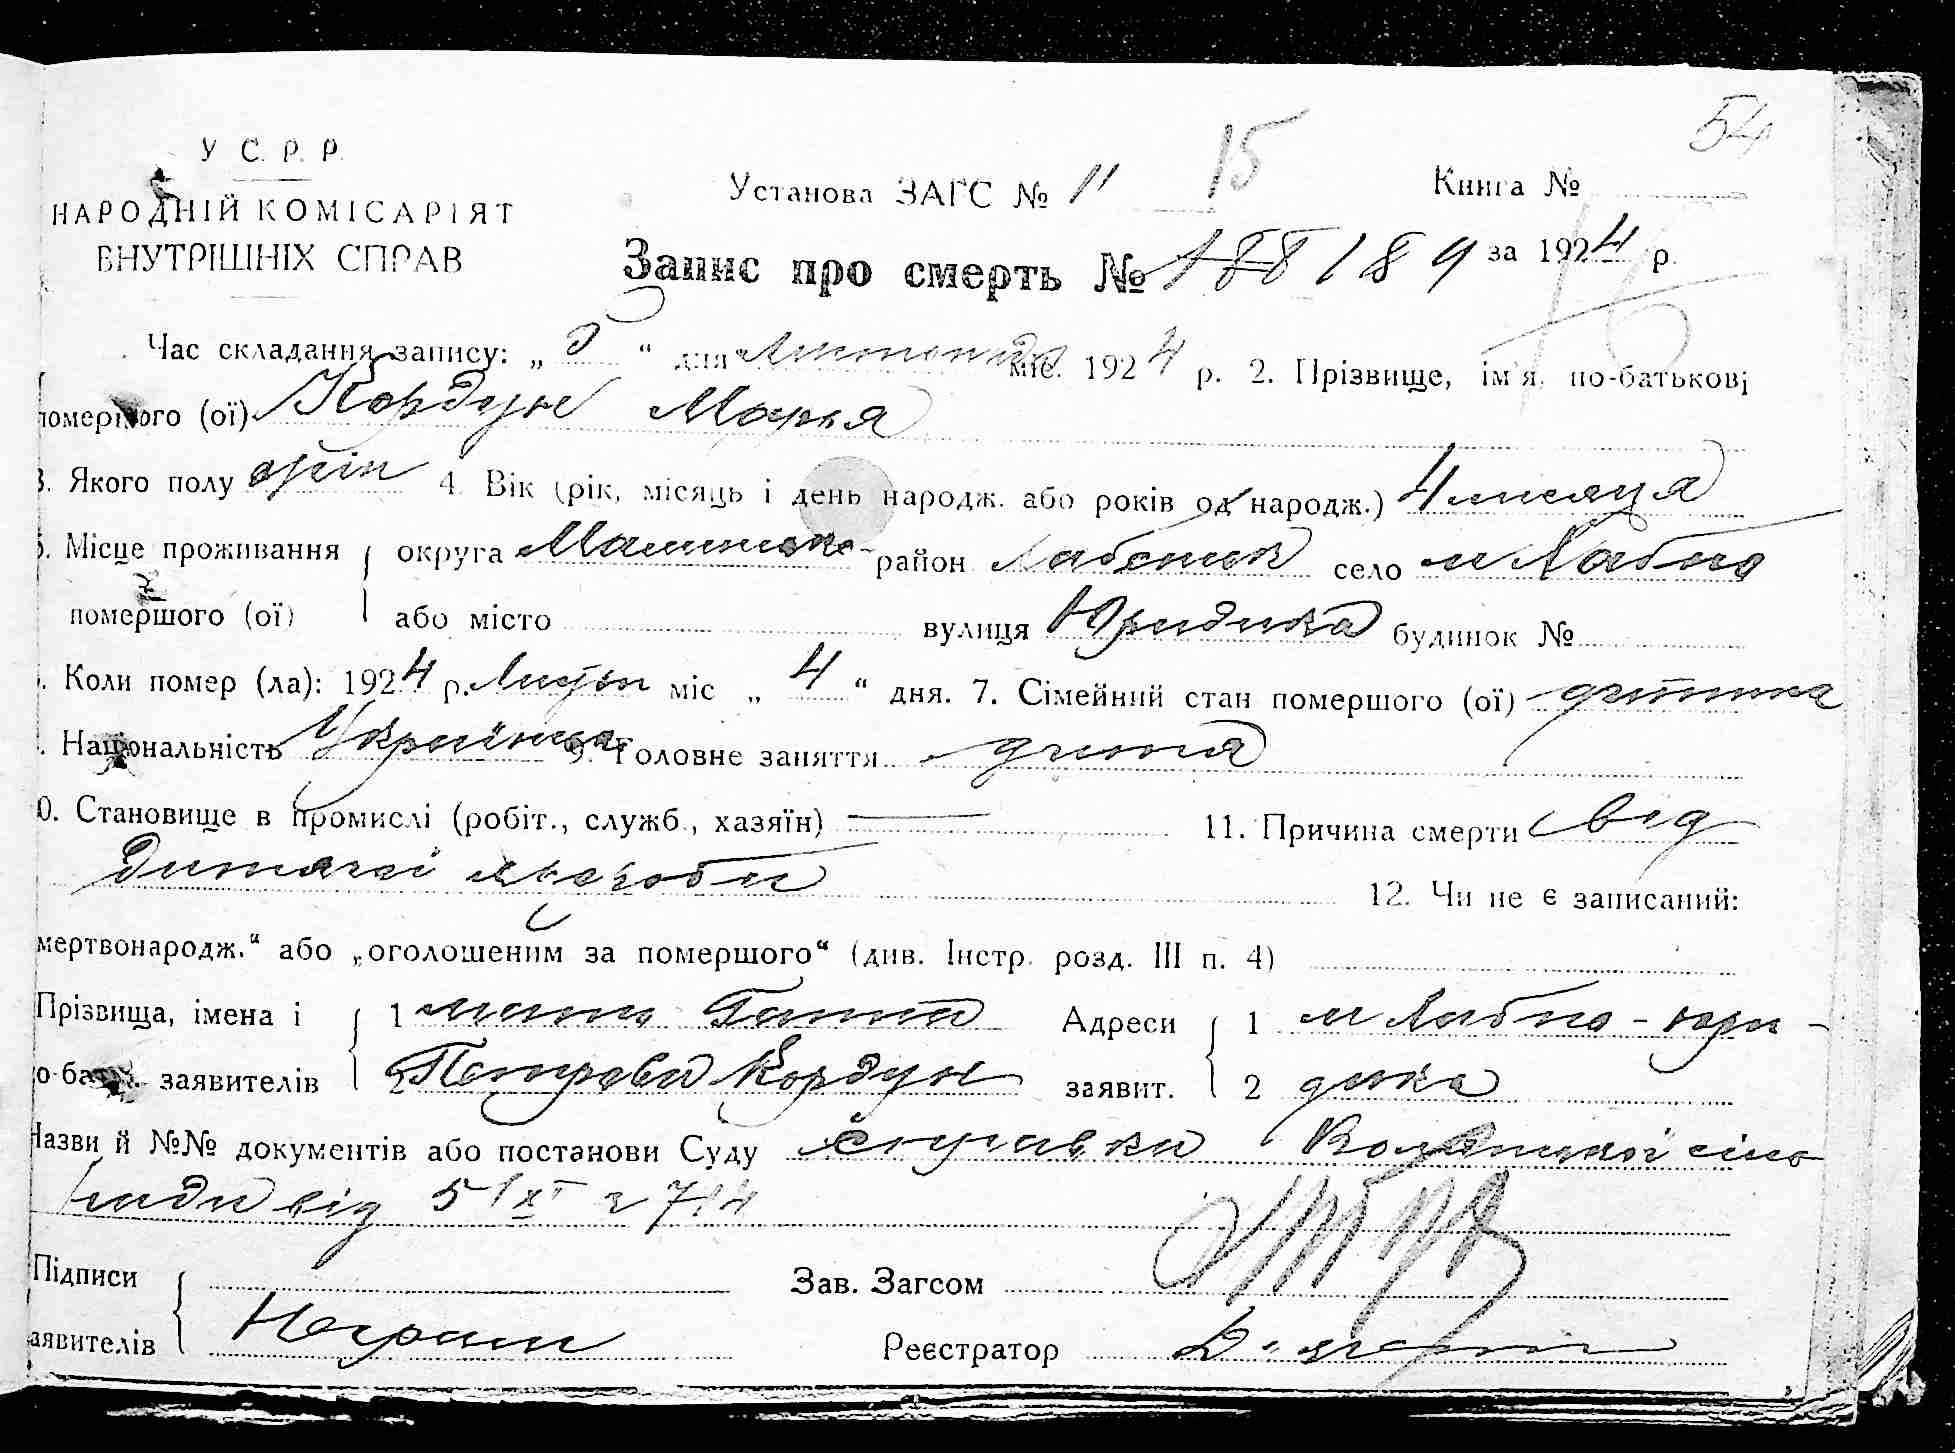 54
У С. Р. Р.
НАРОДНІЙ КОМІСАРІЯТ
ВНУТРІШНІХ СПРАВ
Установа ЗАГС № 11 15 Книга №
Запис про смерть № 188 189 за 1924 р.
Час складання запису: „ 5 “ дня Листопада міс. 1924 р. 2. Прізвище, ім'я, по-батькові
помершого (ої) Кордун Марья
3. Якого полу жін 4. Вік (рік, місяць і день народж. або років од народж.) 4 месяця
5. Місце проживання округа район Хабенск село м Хабно
помершого (ої) або місто вулиця Юридика будинок №
. Коли помер (ла): 1924 р. міс „ 4 “ дня. 7. Сімейний стан помершого (ої) дитина
. Національність Українка 9. Головне заняття дитя
0. Становище в промислі (робіт., служб., хазяїн) — 11. Причина смерти від
дитячої хвороби 12. Чи не є записаний:
мертвонародж.“ або „оголошеним за помершого“ (див. Інстр. розд. III п. 4)
Прізвища, імена і 1 мати Ганна Адреси 1 м Хабно - юри-
о-батьк. заявителів 2 Петрова Кордун заявит. 2 дика
Назви й №№ документів або постанови Суду справка сіль
ради від 5/XI 714
Підписи Зав. Загсом
аявителів Неграм Реєстратор